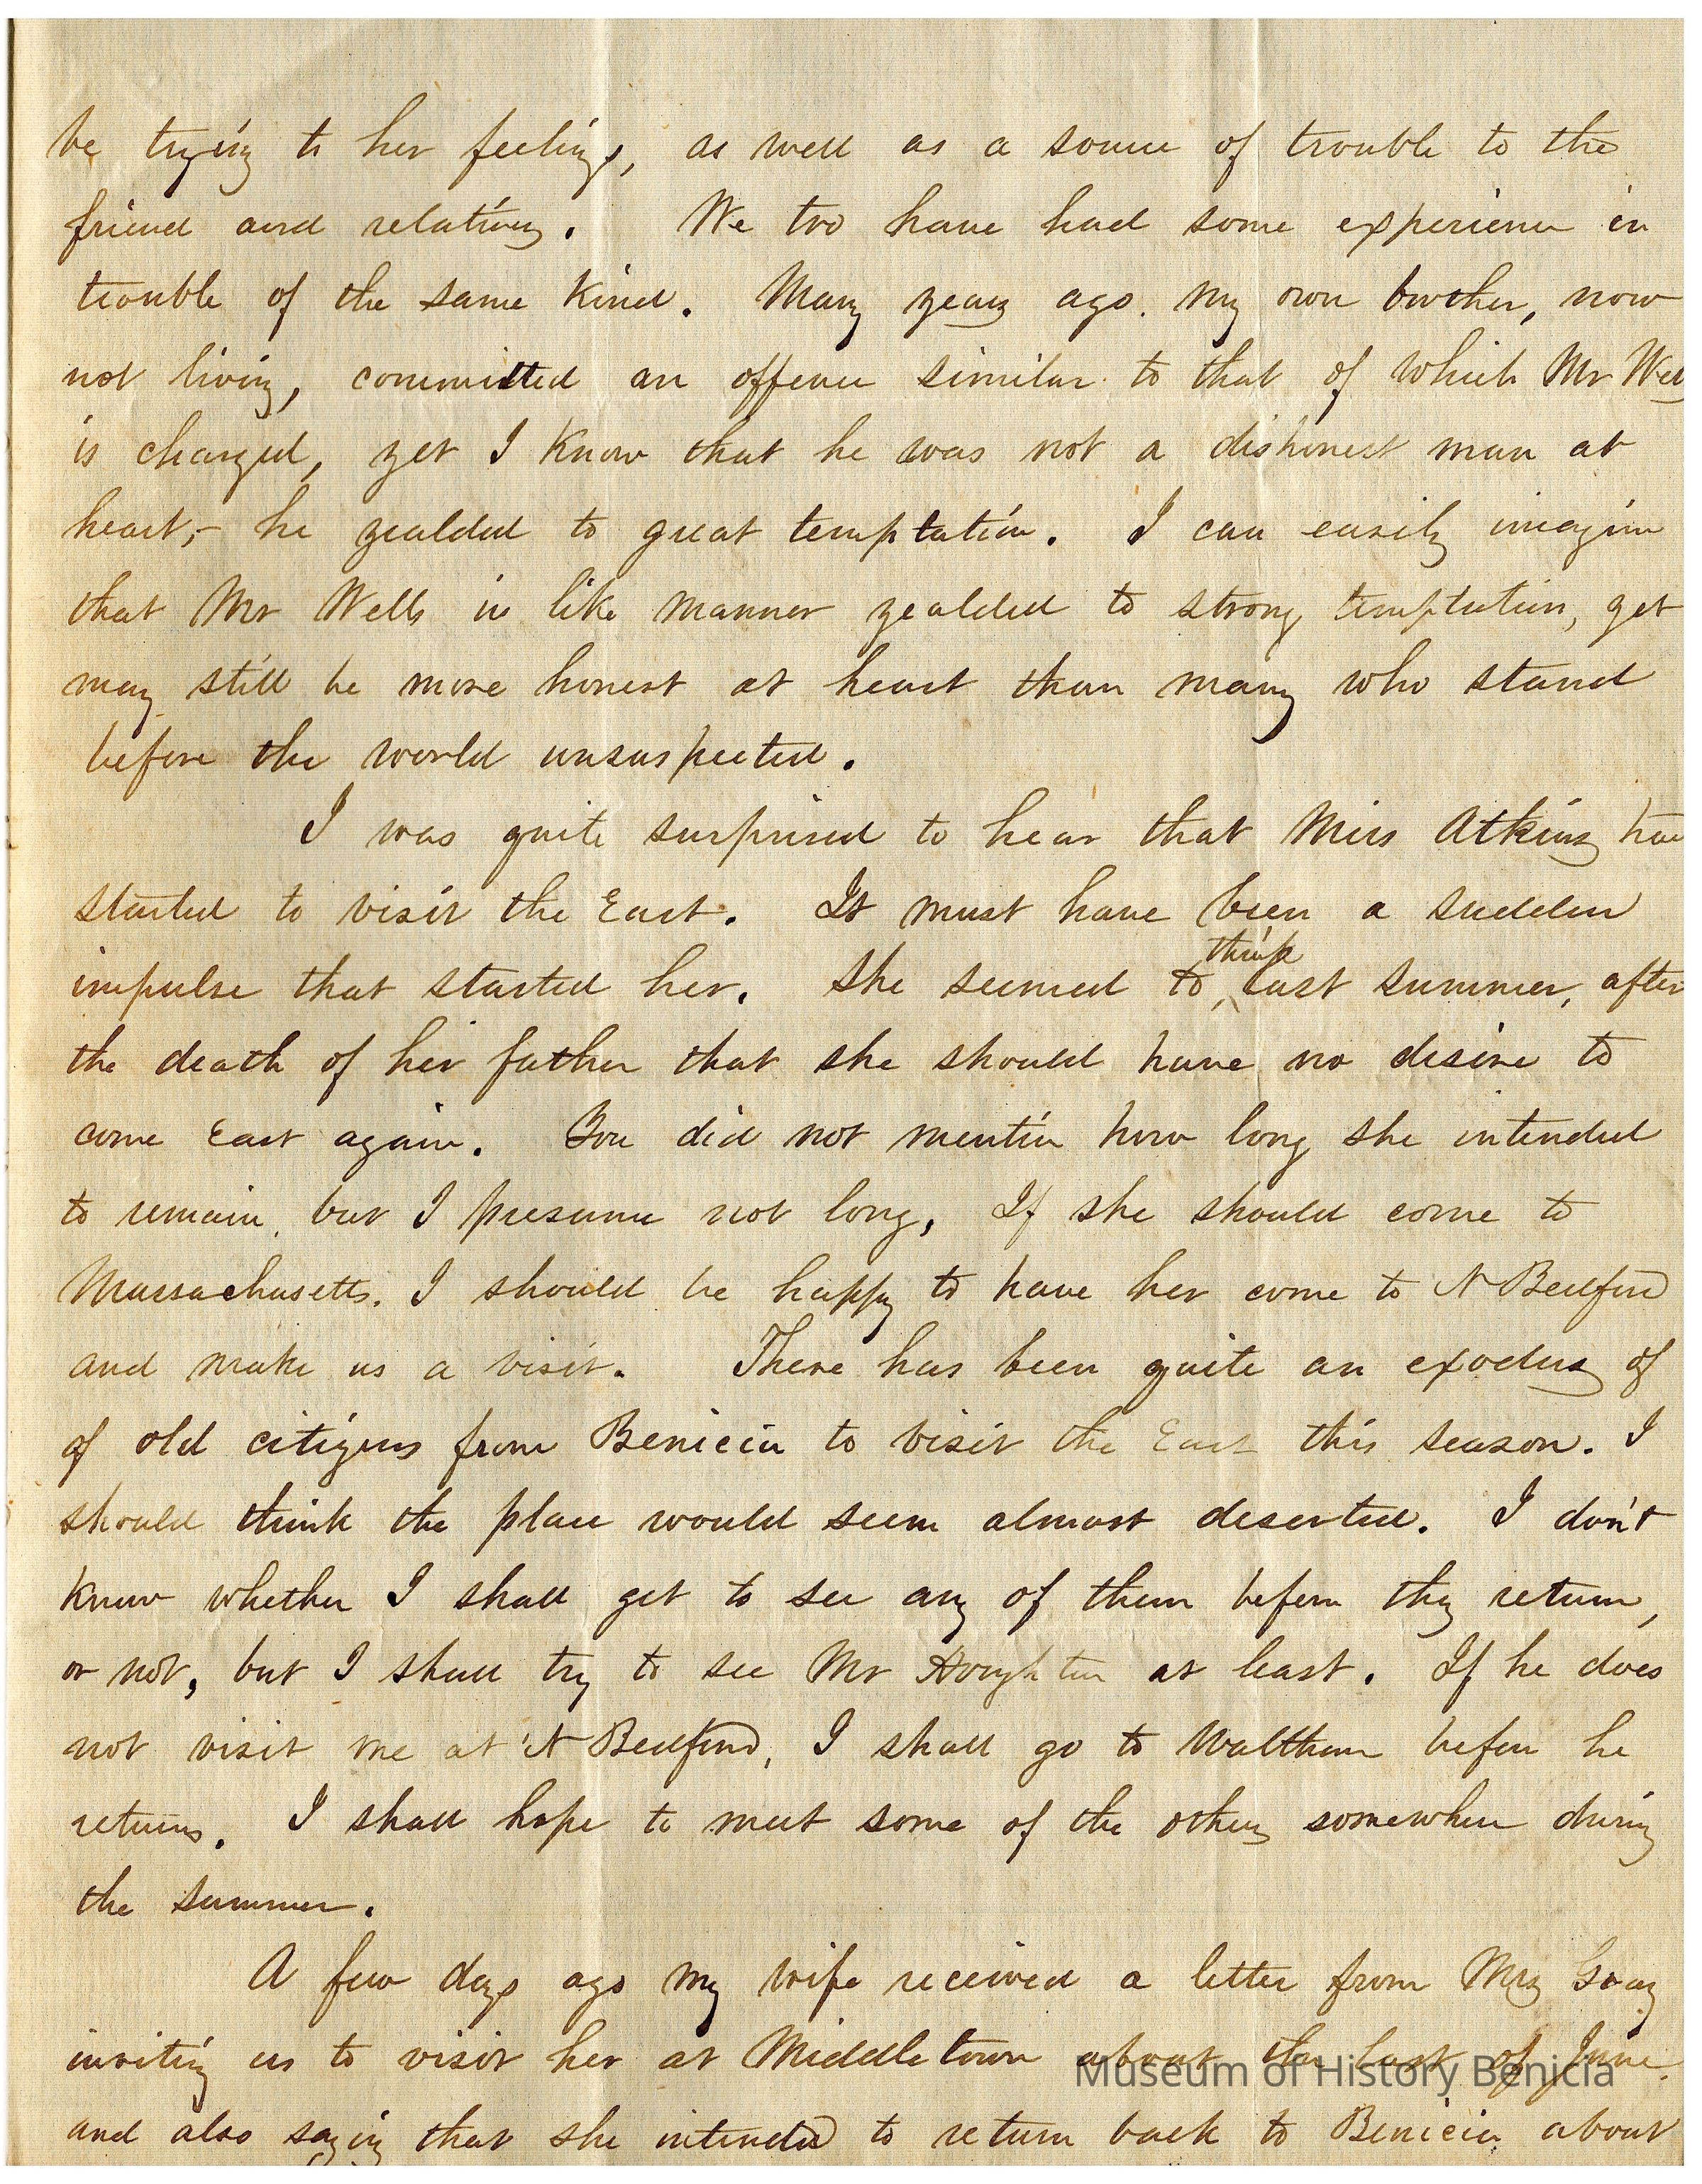 be trying to her feelings, as well as a source of trouble to the
friend and relatives. We too have had some experience in
trouble of the same kind. Many years ago. my own brother, now
not living, committed an offence similar to that of which Mr Wells
is charged, yet I know that he was not a dishonest man at
heart,- he yealded to great temptation. I can easily imagine
that Mr Wells in like manner yealded to strong temptation, yet
may still be more honest at heart than many who stand
before the world unsuspected.
I was quite surprised to hear that Miss Atkins had
started to visit the East. It must have been a sudden
impulse that started her. She seemed to think last summer, after
the death of her father that she should have no desire to
come East again. You did not mention how long she intended
to remain, but I presume not long. If she should come to
Massachusetts. I should be happy to have her come to N Bedford
and make us a visit. There has been quite an exodus of
of old citizens from Benicia to visit the East this season. I
should think the place would seem almost deserted. I don't
know whether I shall get to see any of them before they return,
or not, but I shall try to see Mr Houghton at least. If he does
not visit me at N Bedford, I shall go to Waltham before he
returns. I shall hope to meet some of the others somewhere during
the summer.
A few days ago my wife received a letter from Mrs Gray
inviting us to visit her at Middletown about the last of June.
and also saying that she intended to return back to Benicia about
Museum of History Benicia